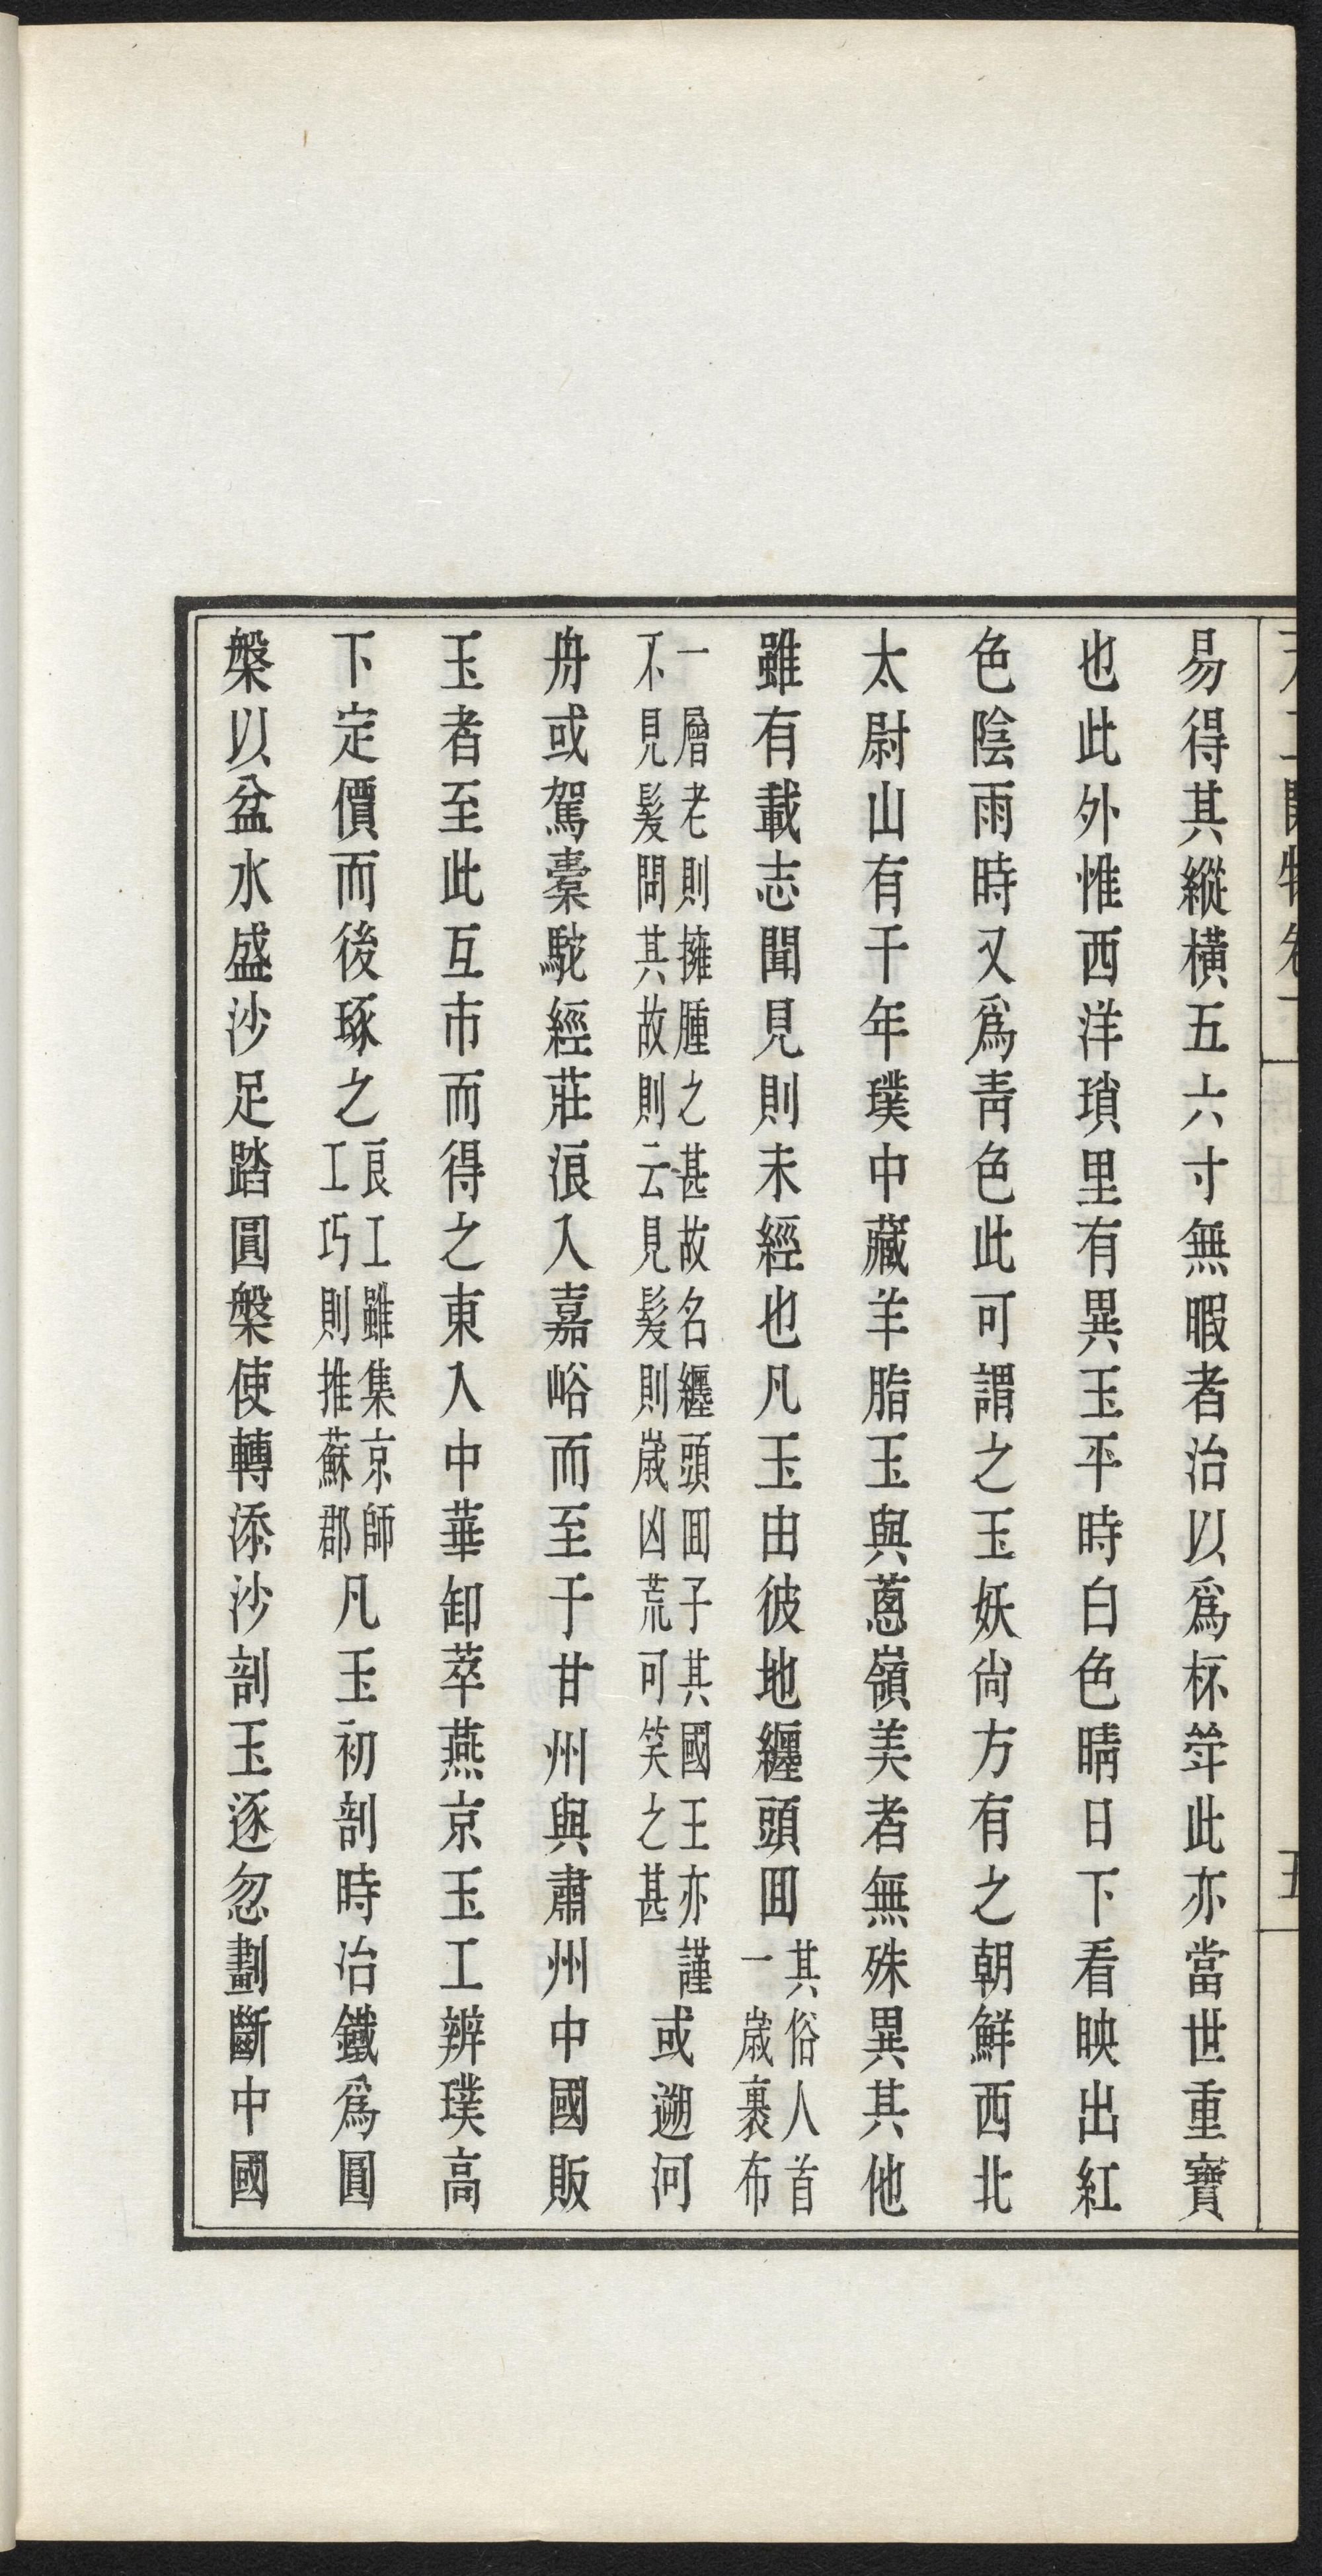 易得其縱橫五六寸無暇者治以爲杯斝此亦當世重寶
也此外惟西洋瑣里有異玉平時白色晴日下看映出紅
色陰雨時又爲靑色此可謂之玉妖尙方有之朝鮮西北
太尉山有千年璞中藏羊脂玉與蔥嶺美者無殊異其他
雖有載志聞見則未經也凡玉由彼地纒頭囬其俗人首一歲裹布
一層老則擁腫之甚故名纒頭囬子其國王亦謹不見髮問其故則云見髮則歲凶荒可笑之甚或遡河
舟或駕橐駝經莊浪入嘉峪而至于甘州與肅州中國販
玉者至此互市而得之東入中華卸萃燕京玉工辨璞高
下定價而後琢之良工雖集京師工巧則推蘇郡凡玉初剖時冶鐵爲圓
槃以盆水盛沙足踏圓槃使轉添沙剖玉逐忽劃斷中國